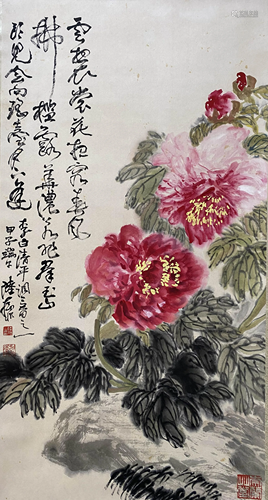 雲想衣裳花想容春風
拂檻露華濃若非群玉
山頭見會向瑶臺月下逢
李白清平調
甲子